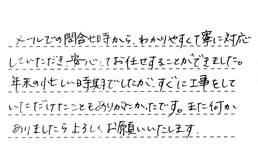 メールでの問合せ時から、わかりやすく丁寧に対応
していただき安心してお任せすることができました。
年末の忙しい時期でしたが、すぐに工事をして
いただけたこともありがたかったです。また何か
ありましたらよろしくお願いいたします。